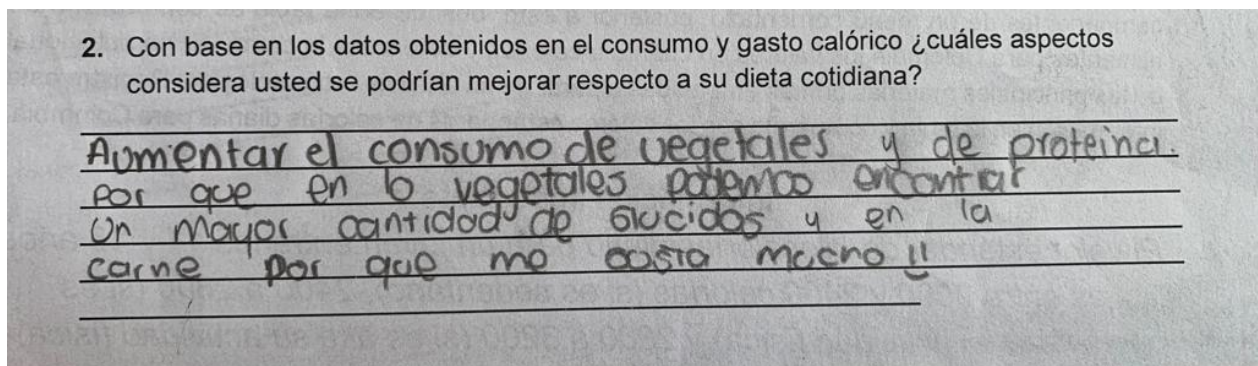 2. Con base en los datos obtenidos en el consumo y gasto calórico ¿cuáles aspectos
considera usted se podrían mejorar respecto a su dieta cotidiana?
Aumentar el consumo de vegetales y de proteina.
por que en lo vegetales podemos encontrar
Un mayor cantidad de Glucidos y en la
carne por que me gusta mucho !!